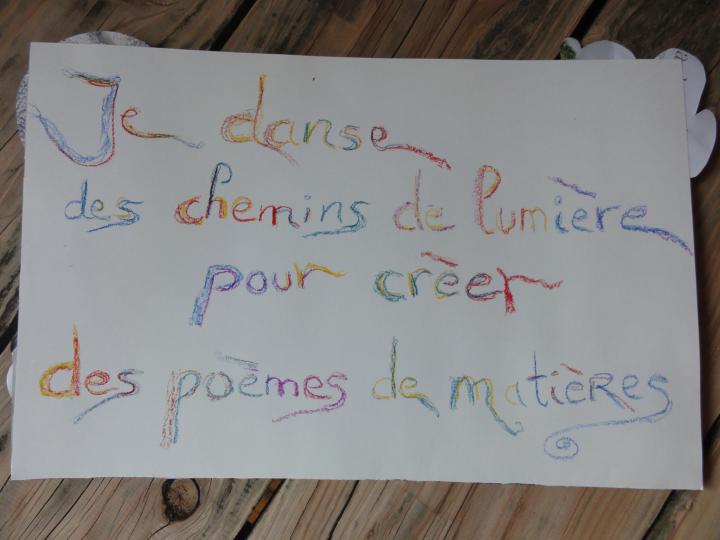 Je danse
des chemins de lumière
pour créer
des poèmes de matières